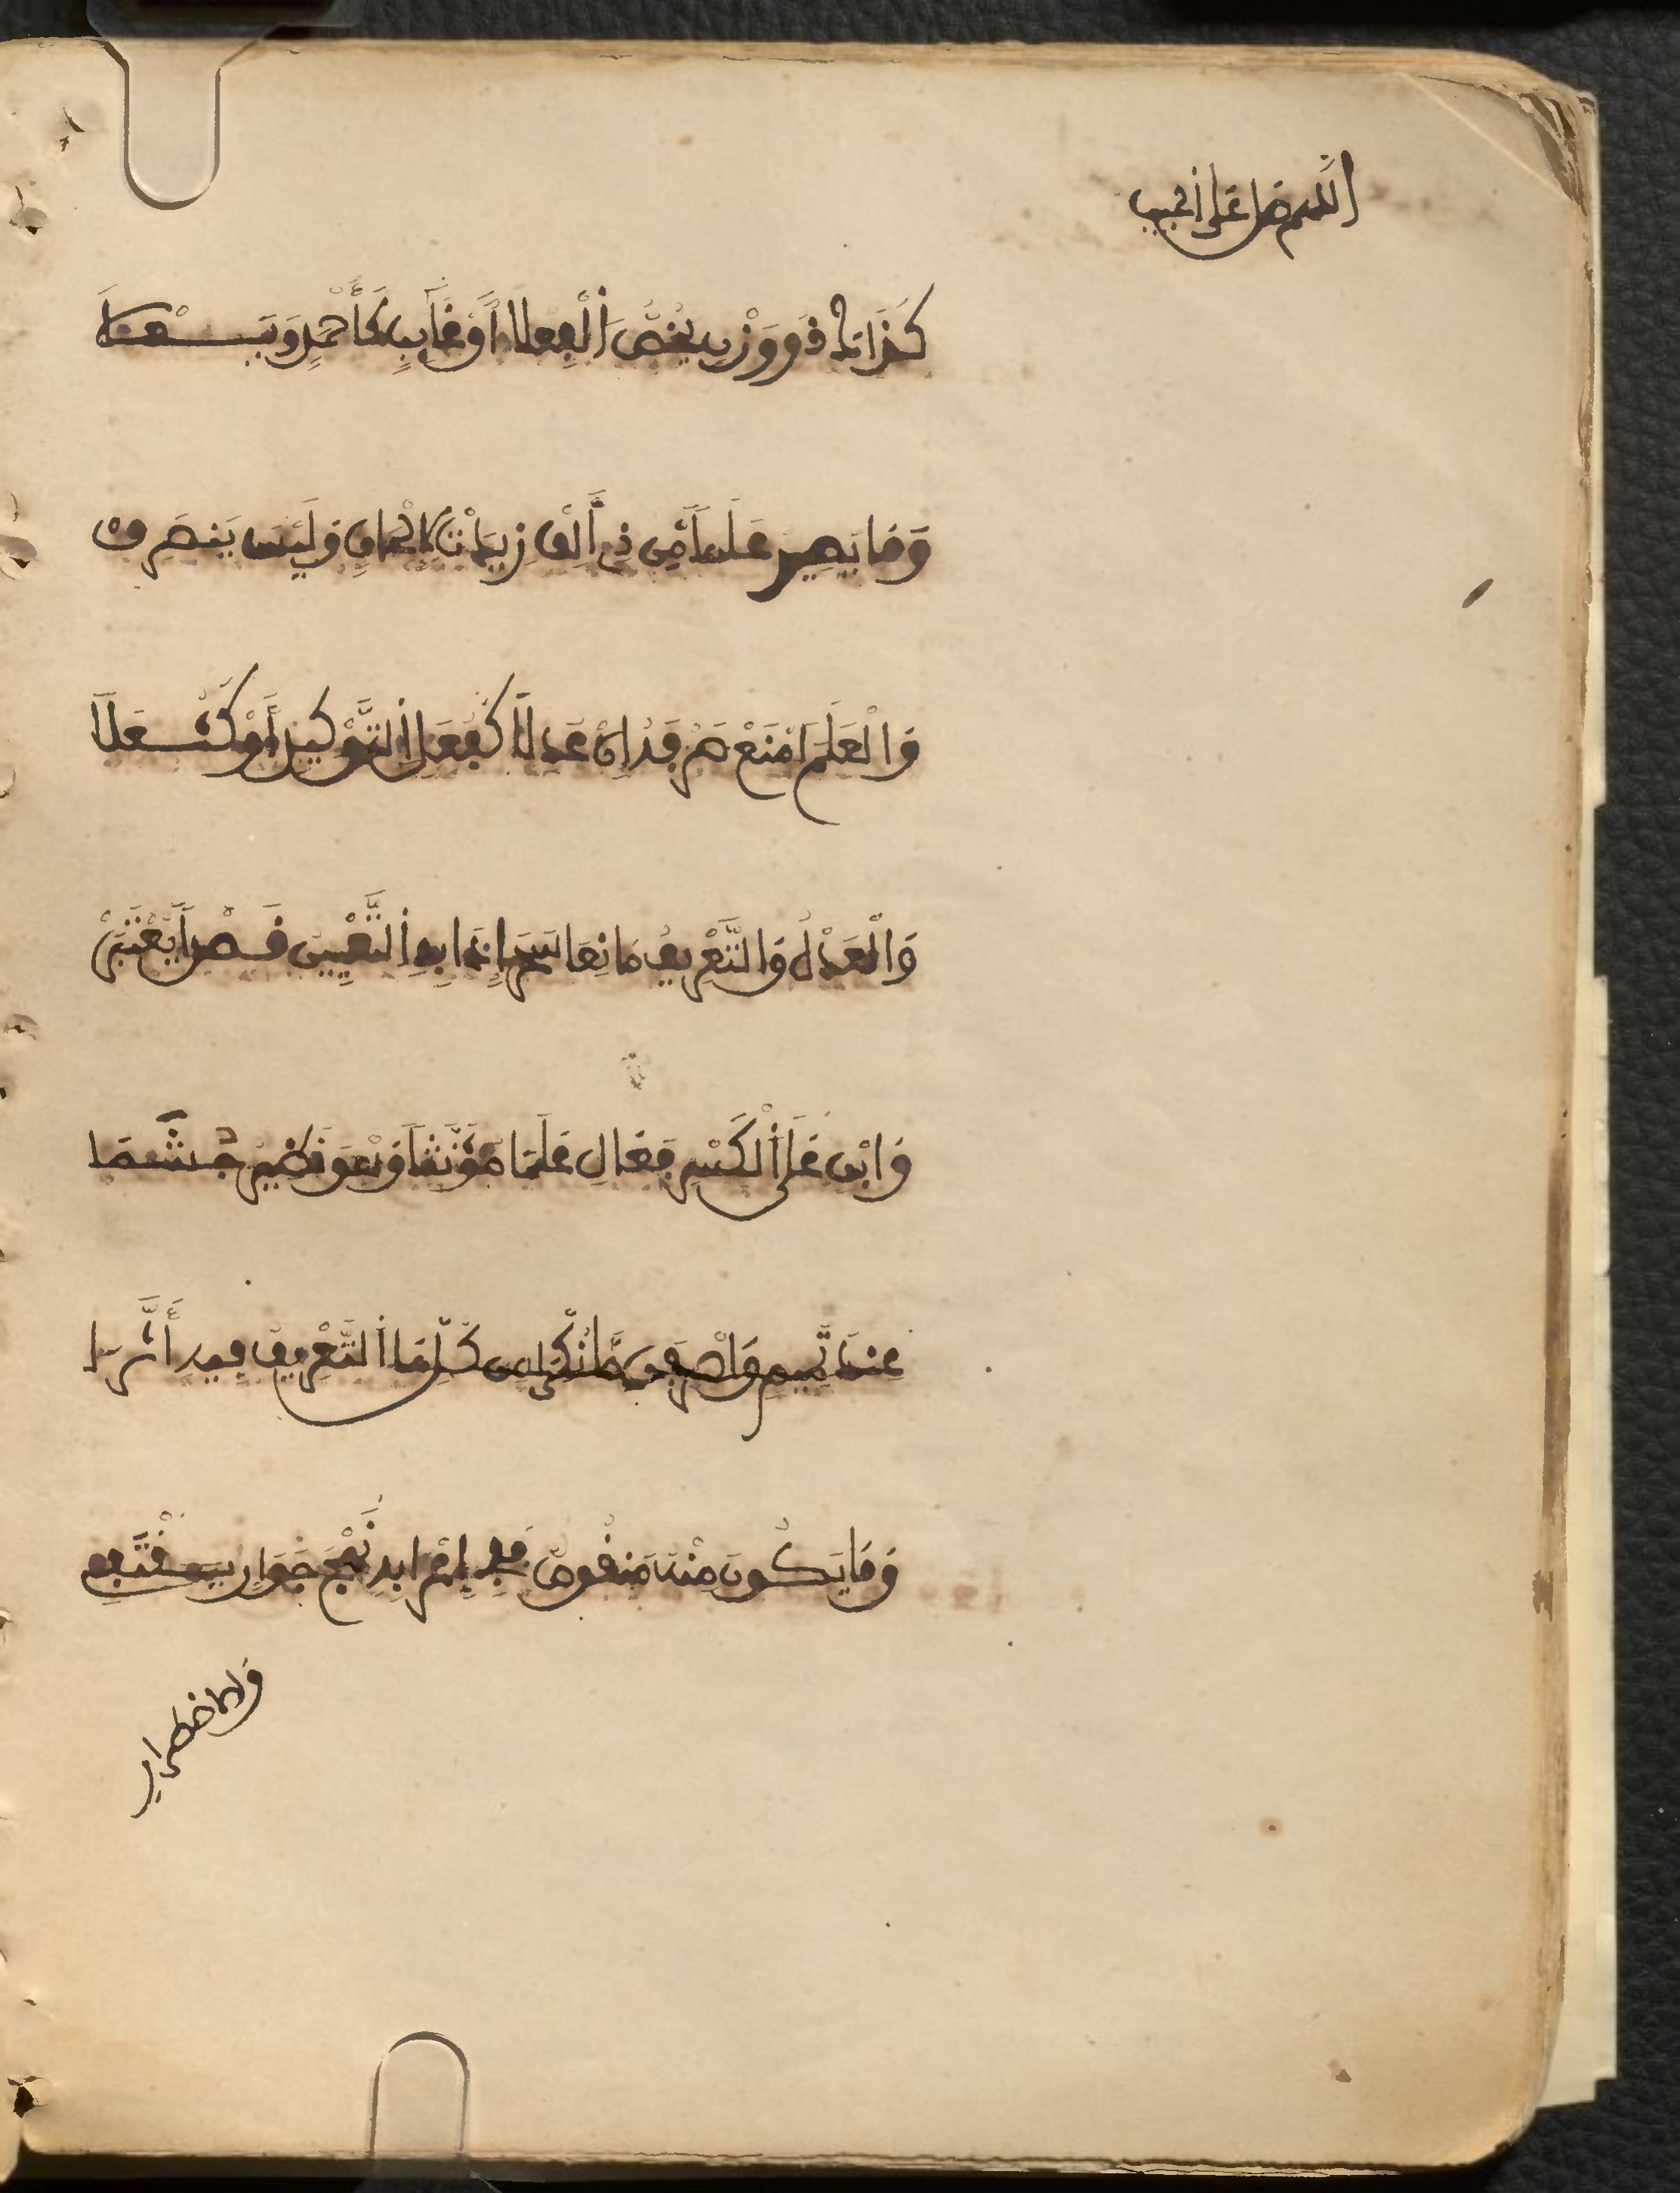 اللهم صل على الحبيب
كَذَاكَ ذُو وَزْنٍ يَخُصُّ الْفِعْلَا أَوْ غَالِبٍ كَأَحْمَدٍ وَيَعْلَى
وَمَا يَصِيرُ عَلَمًا مِنْ ذِي أَلِفْ زِيدَتْ لِإِلْحَاقٍ فَلَيْسَ يَنْصَرِفْ
وَالْعَلَمَ امْنَعْ صَرْفَهُ إِنْ عُدِلَا كَفُعَلِ التَّوْكِيدِ أَوْ كَثُعَلَا
وَالْعَدْلُ وَالتَّعْرِيفُ مَانِعَا سَحَرْ إِذَا بِهِ التَّعْيِينُ قَصْدًا يُعْتَبَرْ
وَابْنِ عَلَى الْكَسْرِ فَعَالِ عَلَمَا مُؤَنَّثًا وَهْوَ نَظِيرُ جُشَمَا
عِنْدَ تَمِيمٍ وَاصْرِفَنْ مَا نُكِّرَا مِنْ كُلِّ مَا التَّعْرِيفُ فِيهِ أَثَّرَا
وَمَا يَكُونُ مِنْهُ مَنْقُوصًا فَفِي إِعْرَابِهِ نَهْجَ جَوَارٍ يَقْتَفِي
ولاضطرار